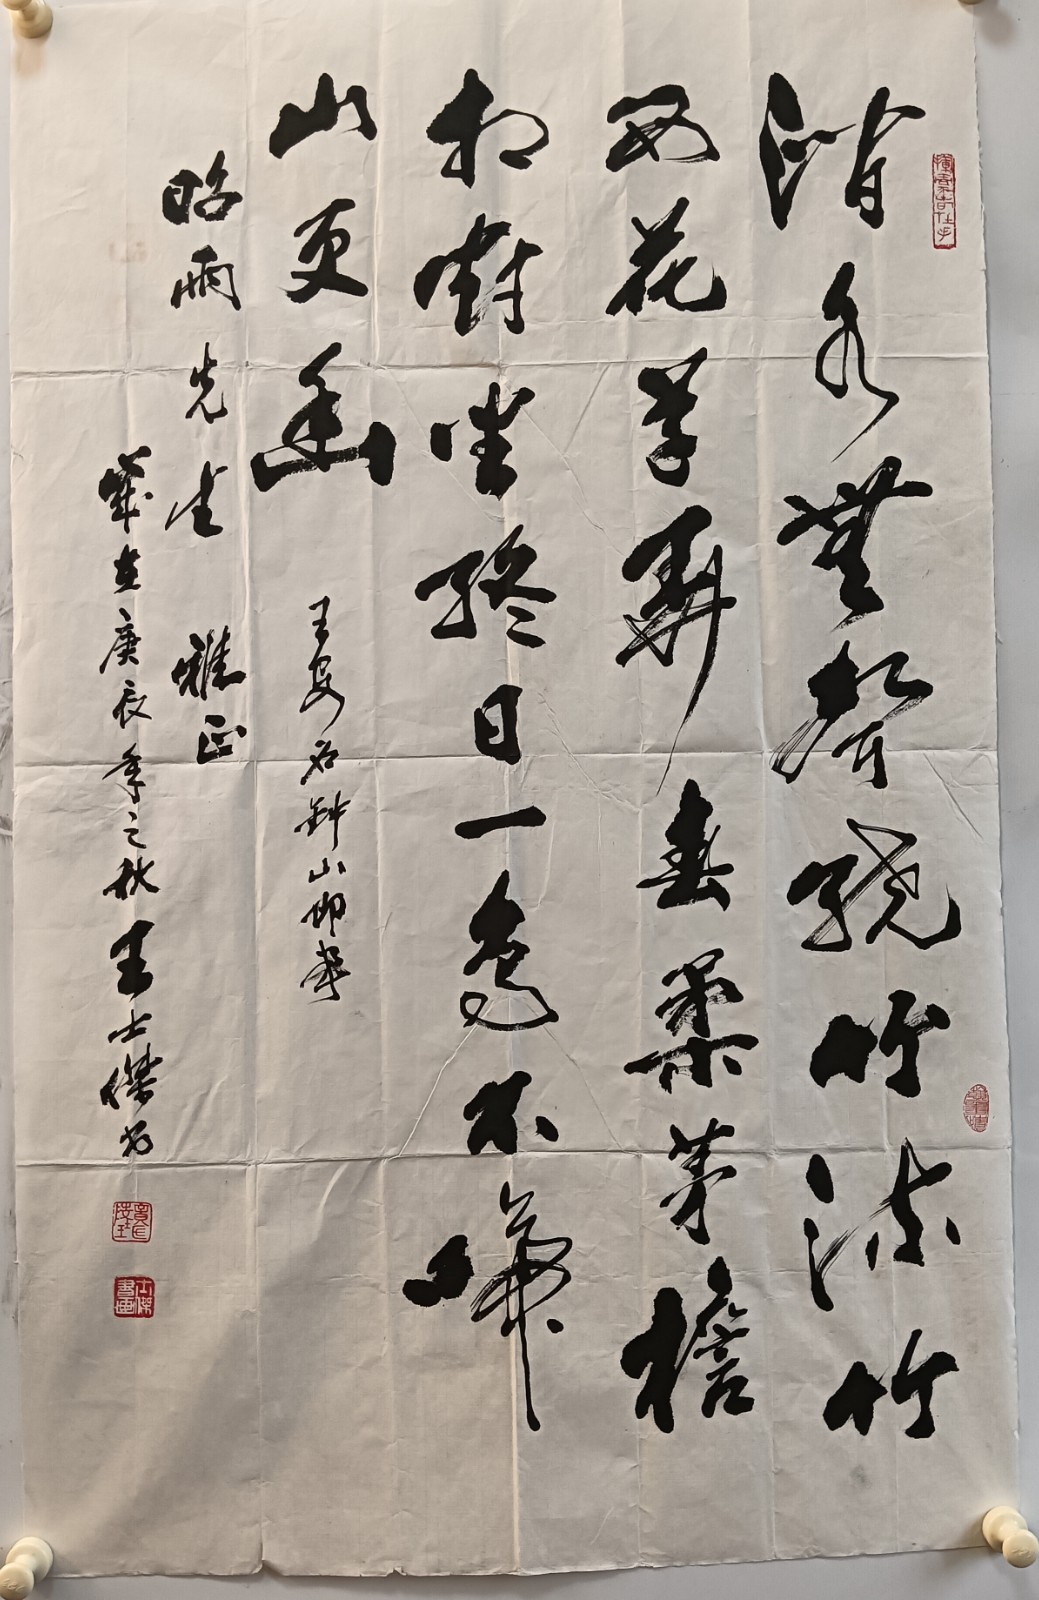 澗水無聲繞竹流竹
西花草弄春柔茅檐
相對坐終日一鳥不啼
山更幽
王安石鍾山即事
昭雨先生 雅正
歲在庚辰年之秋王士傑書
士傑書画